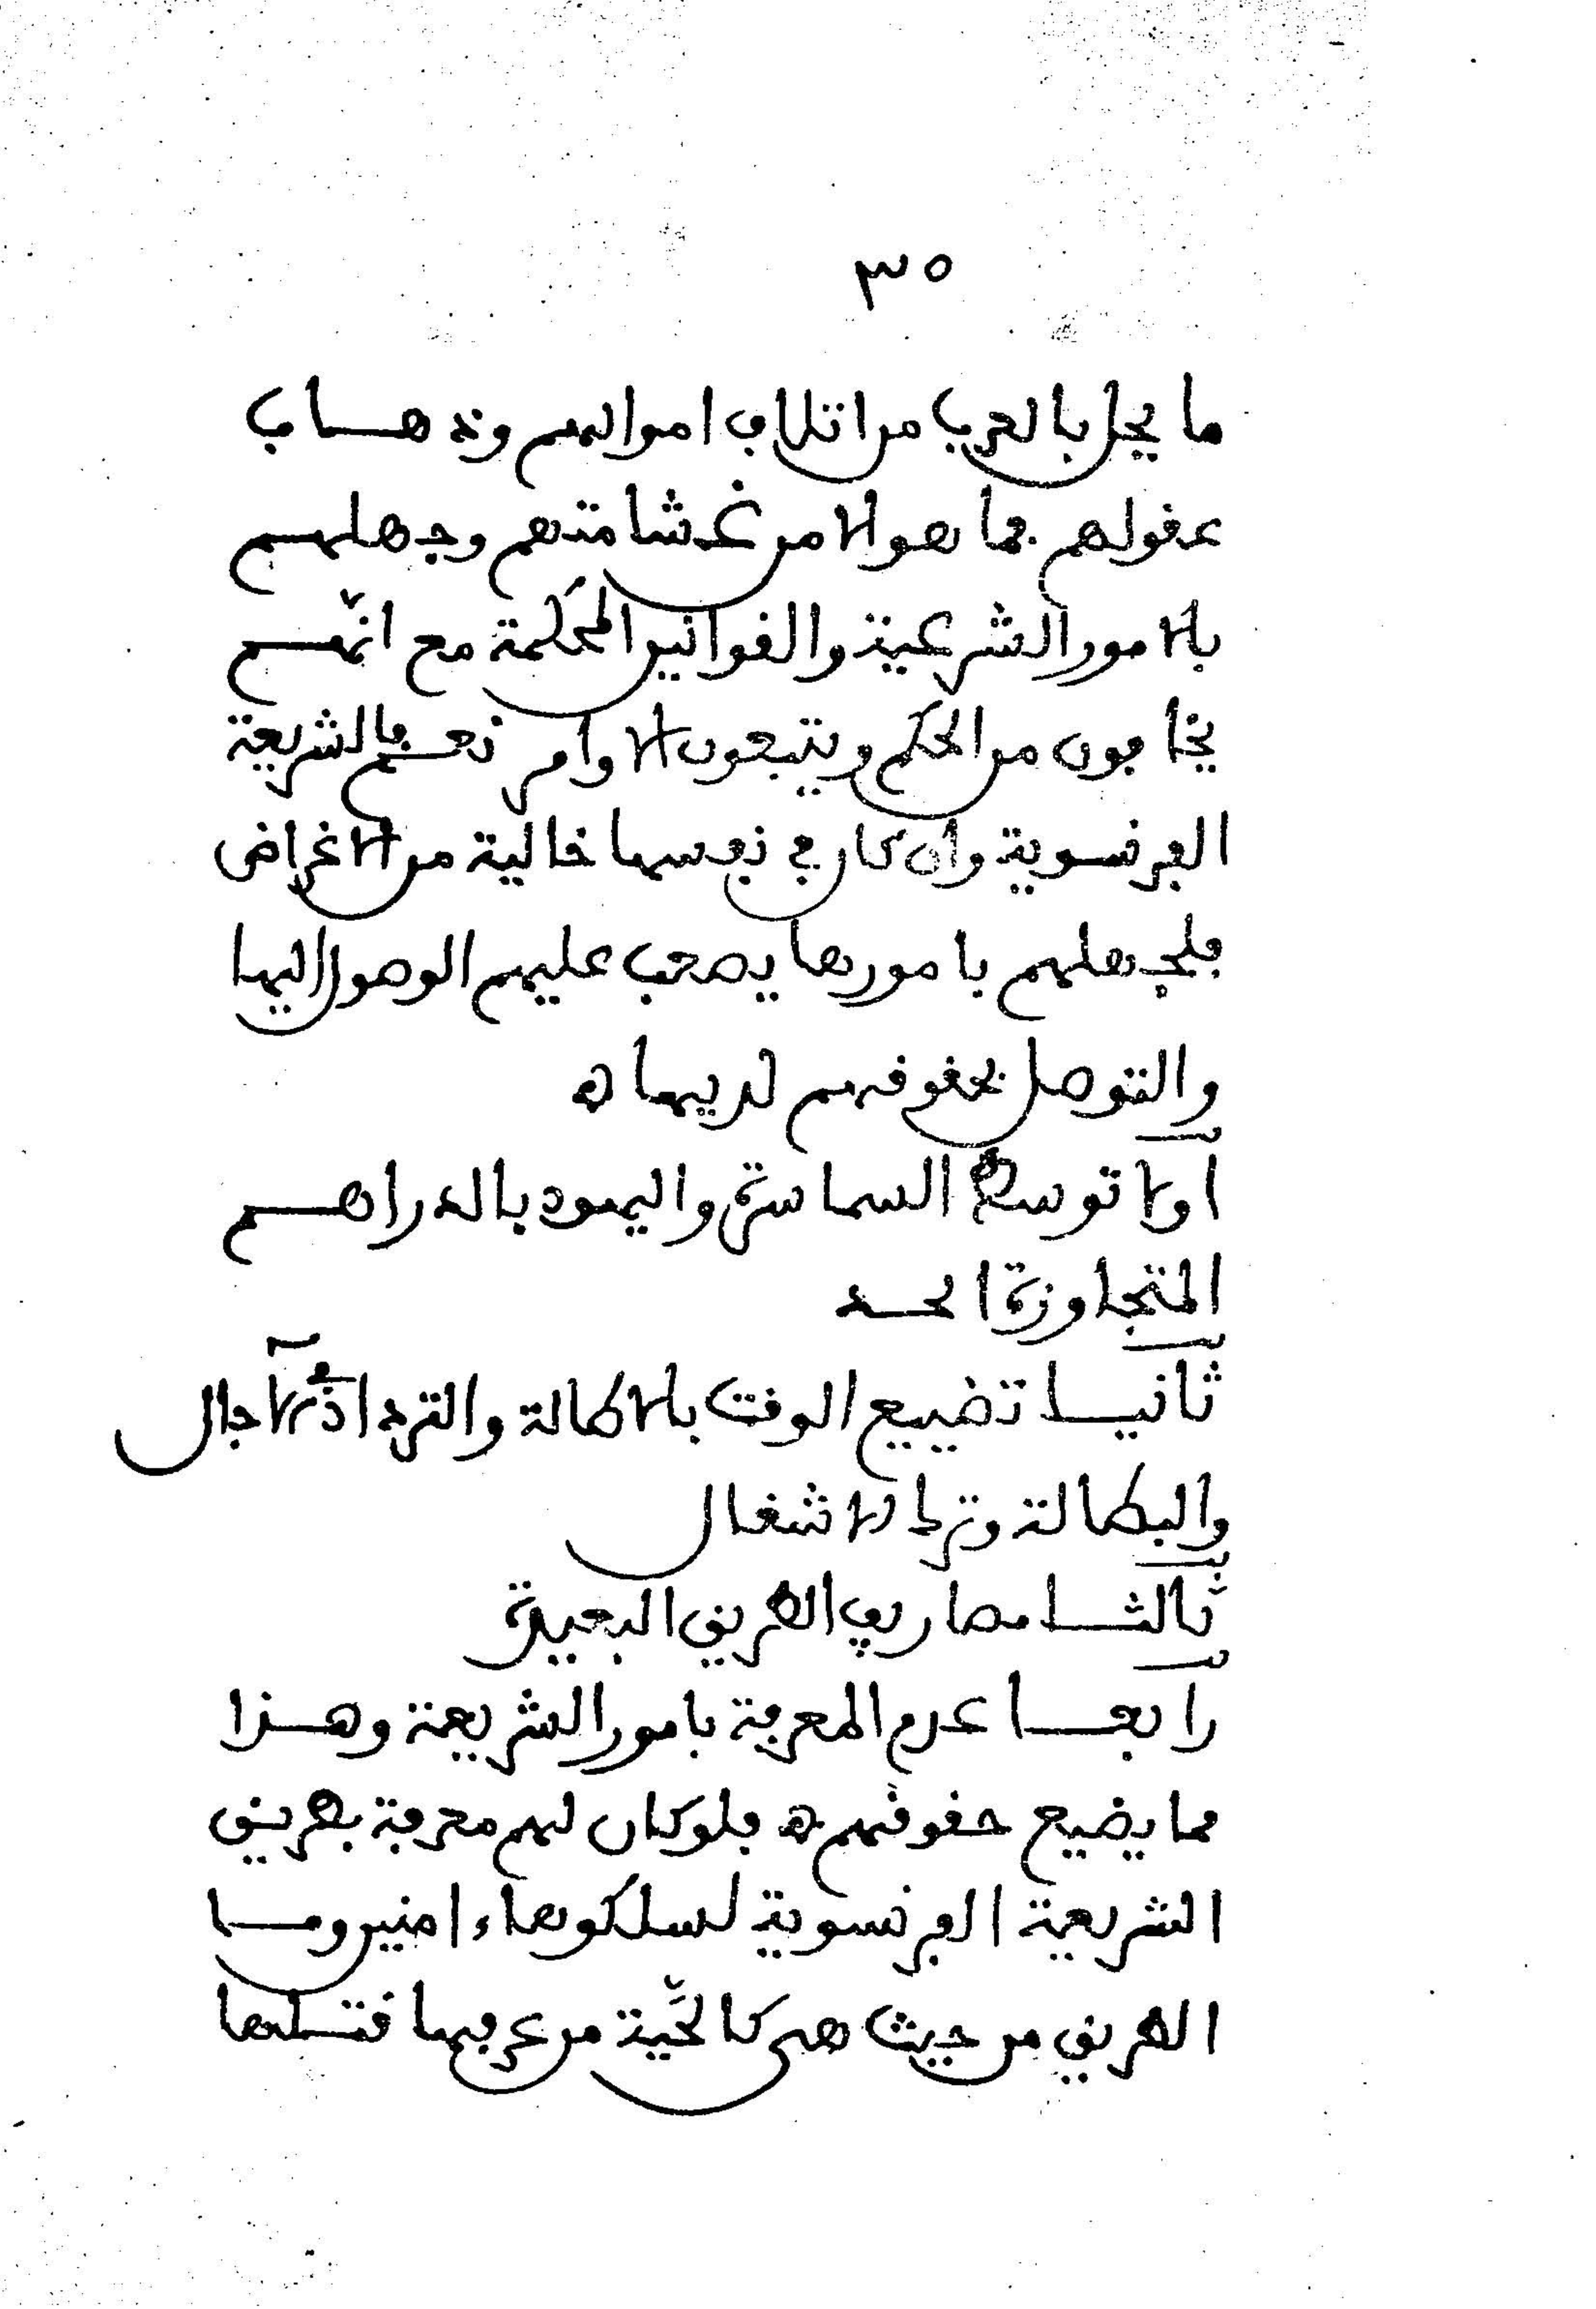 ٣٥
ما يحل بالعرب من اتلاف اموالهم وذهاب
عقولهم فما هو الا من غشامتهم وجهلهم
بالامور الشرعية والقوانين المحكمة مع انّهم
يخافون من الحكم ويتبعون الاوامر نعم فالشريعة
الفرنسوية وان كان في نفسها خالية من الاغراض
فلجهلهم بامورها يصعب عليهم الوصول اليها
والتوصل بحقوقهم لديها ه
اولا توسط السماسرة واليهود بالدراهم
المتجاوزة الحد
ثانيا تضييع الوقت بالاطالة والترداد آجال
والبطالة وترك الاشغال
ثالثا مصاريف الطريق البعيدة
رابعا عدم المعرفة بامور الشريعة وهذا
مما يضيع حقوقهم ه فلو كان لهم معرفة بطريق
الشريعة الفرنسوية لسلكوها ءامنين وما
الطريق من حيث هي كالحَّية من عرفها قتلها